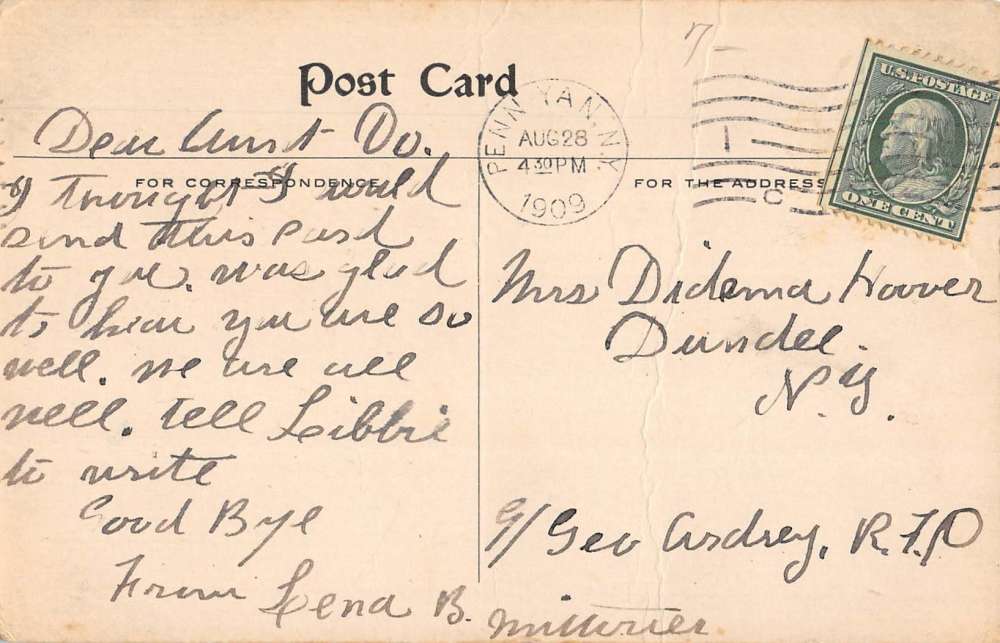 7-
Post Card
PENN YAN, N.Y.
AUG 28
4 30 PM
1909
1
C
U.S. POSTAGE
ONE CENT
FOR CORRESPONDENCE
FOR THE ADDRESS
Dear Aunt Do.
I thought I would
send this card
to you. was glad
to hear you are so
well. we are all
well. tell Libbie
to write
Good Bye
From Lena B.
Mrs Didema Hoover
Dundee.
N.Y.
Geo Ardrey, R.F.D